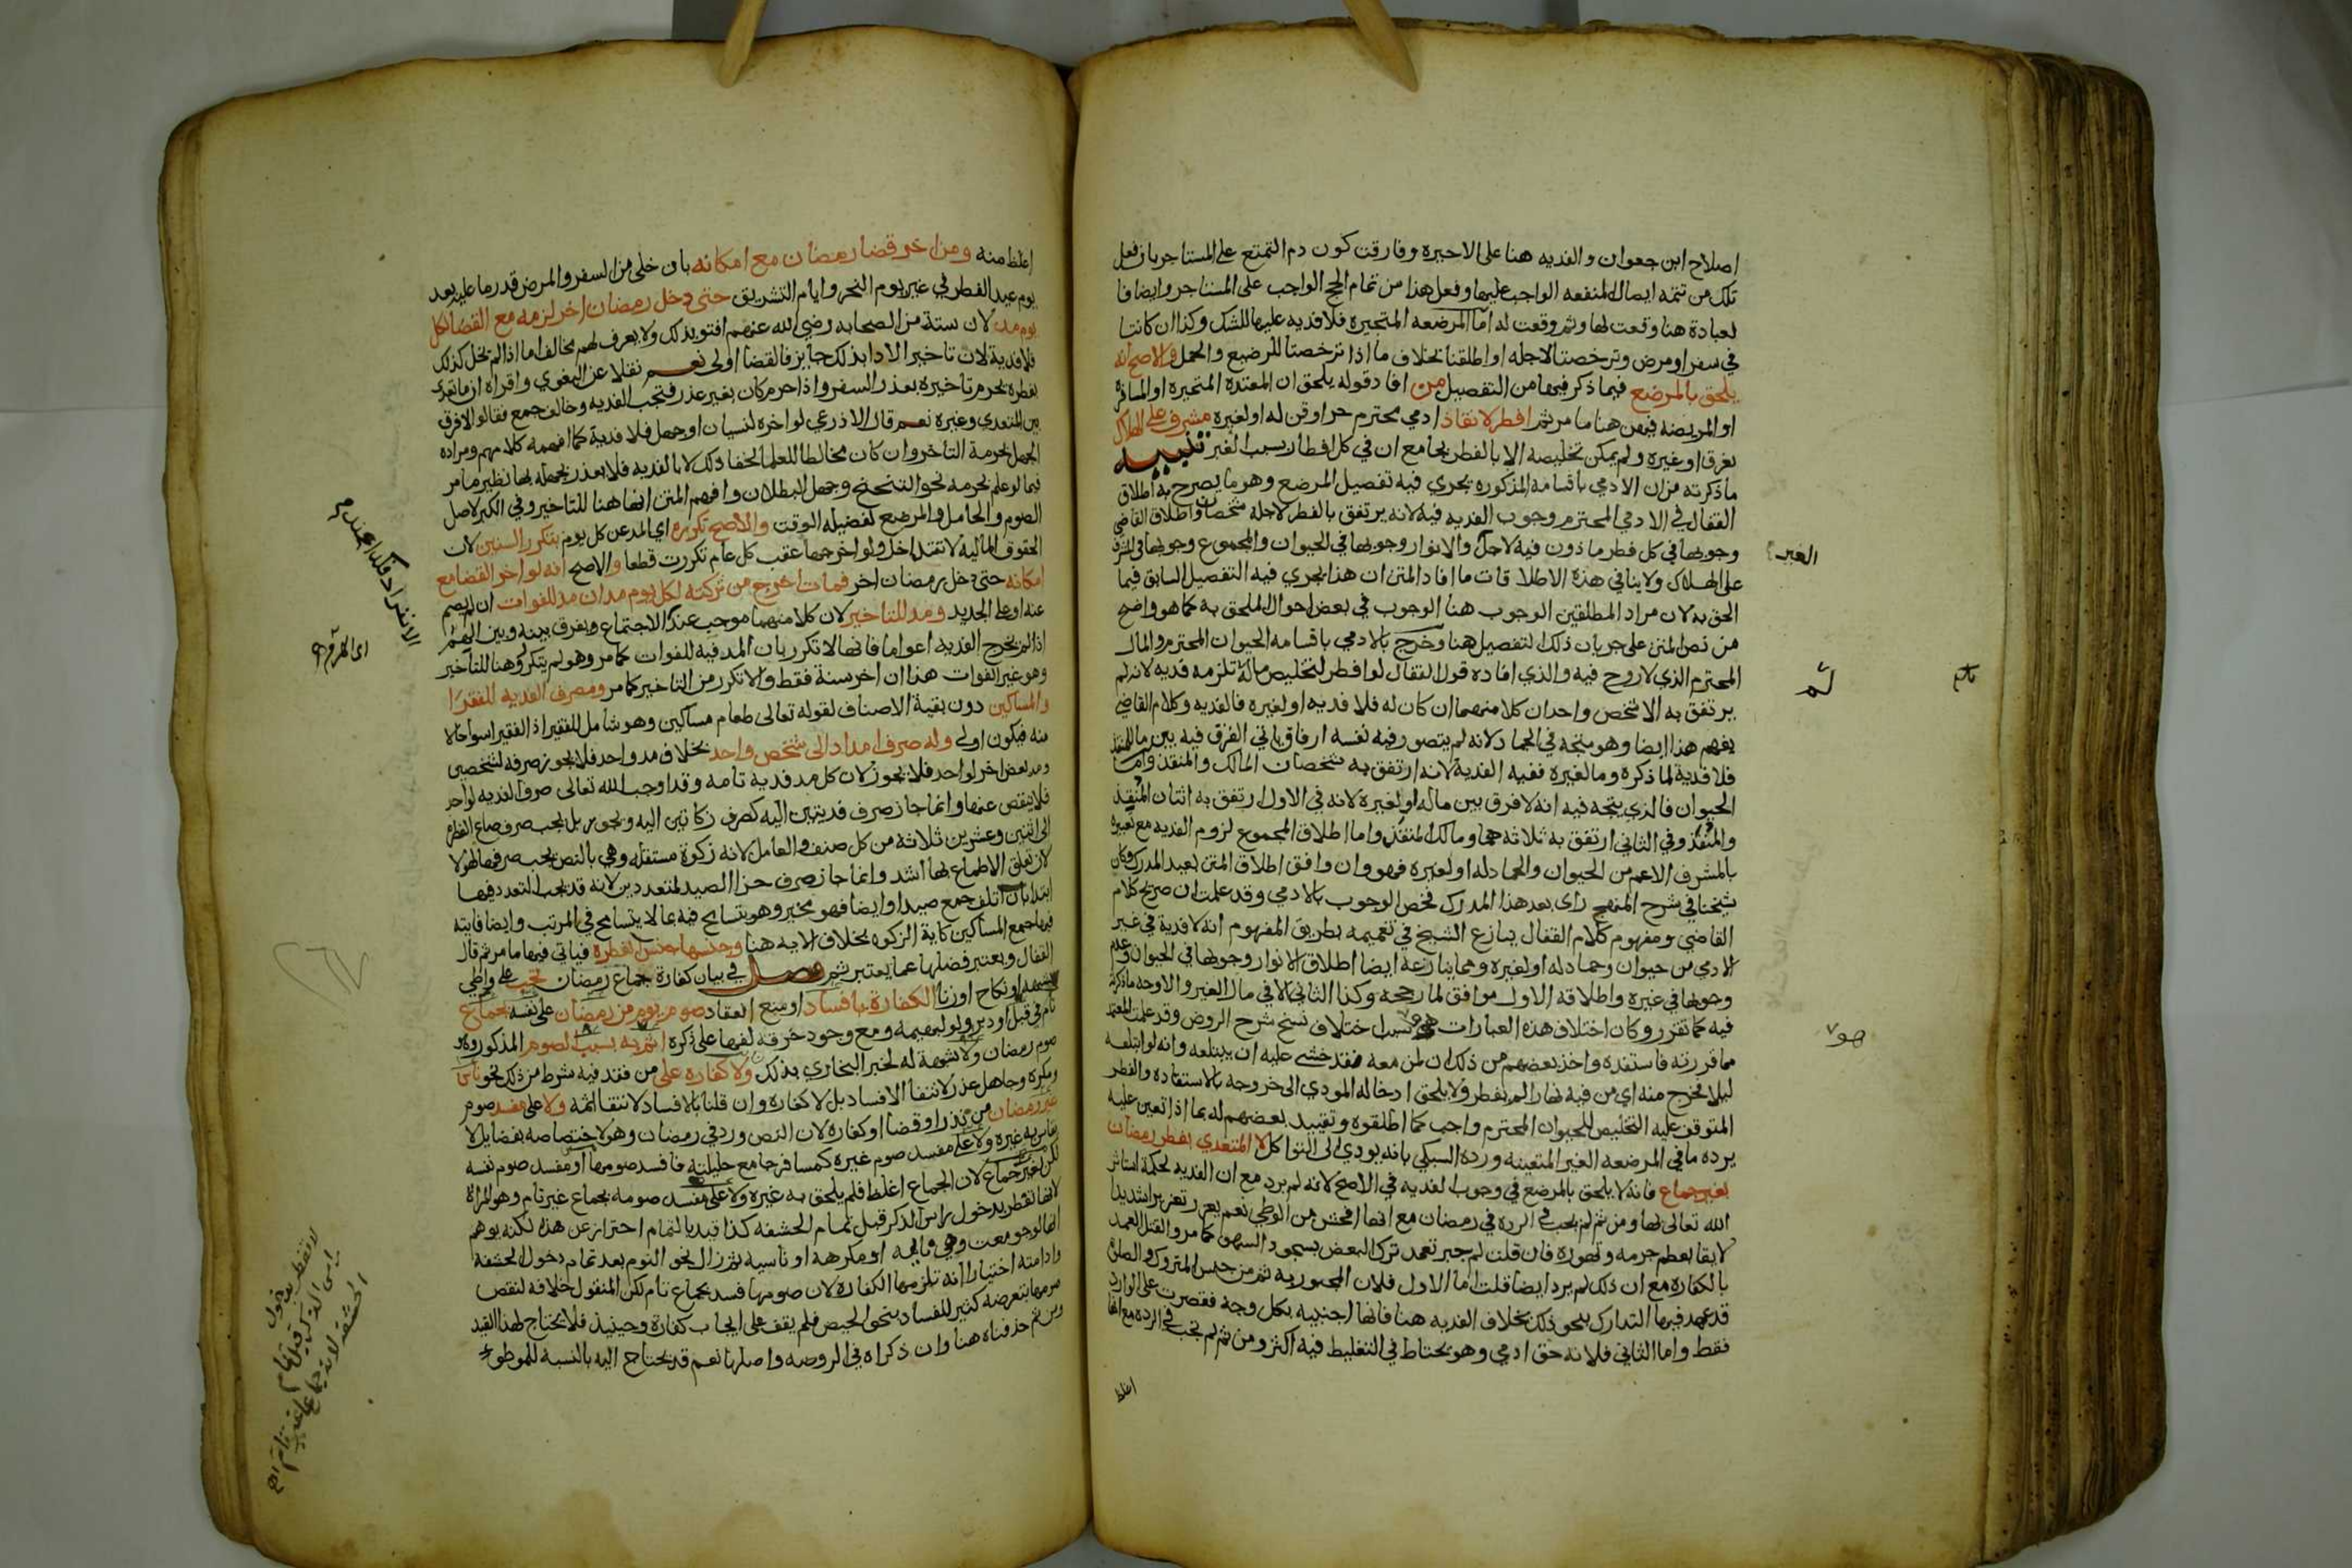 اصلاح ابن جعوان والفديه هنا على الاجيره وفارقت كون دم التمتع على المستاجر بان فعل
تلك من تتمه ايصال المنفعه الواجب عليها وفعل هذا من تمام الحج الواجب على المستاجر وايضا فا
لعبادة هنا وقعت لها وثم وقعت له اما المرضعه المتحيره فلا فديه عليها للشك وكذا ان كانتا
في سفر او مرض وترخصتا لاجله او اطلقتا بخلاف ما اذا ترخصتا للرضيع والحمل والاصح انه
يلحق بالمرضع فيما ذكر فيها من التفصيل من افاد قوله يلحق ان المعتده المتحيرة او المسافرة
او المريضه فيهن هنا ما مر ثم افطر لانقاذ ادمي محترم حر او قن له او لغيره مشرف على الهلاك
بغرق او غيره ولم يمكن تخليصه الا بالفطر بجامع ان في كل افطار بسبب الغير تنبيه
ما ذكرته من ان الادمي باقسامه المذكوره يجري فيه تفصيل المرضع وهو ما يصرح به اطلاق
القفال في الادمي المحترم وجوب الفديه فيه لانه يرتفق بالفطر لاجله شخصان واطلاق القاضي
وجوبها في كل فطر ماذون فيه لاجل والانوار وجوبها في الحيوان والمجموع وجوبها في المشرف
على الهلاك ولا ينافي هذه الاطلاقات ما افاد المتن ان هذا يجري فيه التفصيل السابق فيما
الحق به لان مراد المطلقين الوجوب هنا الوجوب في بعض احوال الملحق به كما هو واضح
من نص المتن على جريان ذلك التفصيل هنا وخرج بالادمي باقسامه الحيوان المحترم والمال
المحترم الذي لا روح فيه والذي افاده قول القفال لو افطر لتخليص ماله لا تلزمه فديه لانه لم
يرتفق به الا شخص واحد ان كلا منهما ان كان له فلا فديه او لغيره فالفديه وكلام القاضي
يفهم هذا ايضا وهو متجه في الجماد لانه لم يتصور فيه نفسه ارفاق باتي الفرق فيه بين ما للمنقذ
فلا فدية لما ذكره وما لغيره ففيه الفدية لانه ارتفق به شخصان المالك والمنقذ واما
الحيوان فالذي يتجه فيه انه لا فرق بين ماله او لغيره لانه في الاول ارتفق به اثنان المنقذ
والمنقذ وفي الثاني ارتفق به ثلاثه هما ومالك المنقذ واما اطلاق المجموع لزوم الفديه مع تعبيره
بالمشرف الاعم من الحيوان والجماد له او لغيره فهو وان وافق اطلاق المتن بعيد المدرك وكان
شيخنا في شرح المنهج راى بعد هذا المدرك فخص الوجوب بالادمي وقد علمت ان صريح كلام
القاضي ومفهوم كلام القفال ينازع الشيخ في تعميمه بطريق المفهوم انه لا فدية في غير
الادمي من حيوان وجماد له او لغيره ومما ينازعه ايضا اطلاق الانوار وجوبها في الحيوان وعدم
وجوبها في غيره واطلاقه الاول موافق لما رجحه وكذا الثاني الا في مال الغير والاوجه ما ذكرته
فيه كما تقرر وكان اختلاف هذه العبارات هو سبب اختلاف نسخ شرح الروض وقد علمت المعتمد
مما قررته فاستفده واخذ بعضهم من ذلك ان لمن معه نقد خشي عليه ان يبتلعه وانه لو ابتلعه
ليلا فخرج منه اي من فيه نهارا لم يفطر ولا يلحق ادخاله المودي الى خروجه بالاستقاءه والفطر
المتوقف عليه التخليص للحيوان المحترم واجب كما اطلقوه وتقييد بعضهم له بما اذا تعين عليه
يرده ما في المرضعه الغير المتعينه ورده السبكي بانه يودي الى التواكل لا المتعدي بفطر رمضان
بغير جماع فانه لا يلحق بالمرضع في وجوب الفديه في الاصح لانه لم يرد مع ان الفديه لحكمة استاثر
الله تعالى بها ومن ثم لم تجب في الرده في رمضان مع انها افحش من الوطي نعم يعزر تعزيرا شديدا
لايقا بعظم جرمه وتهوره فان قلت لم جبر تعمد ترك البعض بسجود السهو كما مر والقتل العمد
بالكفاره مع ان ذلك لم يرد ايضا قلت اما الاول فلان المجبور به ثم من جنس المتروك والصلاة
قد عهد فيها التدارك بنحو ذلك بخلاف الفديه هنا فانها اجنبيه بكل وجه فقصرت على الوارد
فقط واما الثاني فلانه حق ادمي وهو يحتاط في التغليظ فيه اكثر ومن ثم لم تجب في الرده مع انها
اغلظ
الغير
لم
هو
اغلظ منه ومن اخر قضا رمضان مع امكانه بان خلى من السفر والمرض قدر ما عليه بعد
يوم عيد الفطر في غير يوم النحر وايام التشريق حتى دخل رمضان اخر لزمه مع القضا لكل
يوم مد لان ستة من الصحابه رضي الله عنهم افتو بذلك ولا يعرف لهم مخالف اما اذا لم يخل كذلك
فلا فدية لان تاخير الادا بذلك جايز فالقضا اولى نعم نقلا عن البغوي واقراه ان ما تعدى
بفطره يحرم تاخيره بعذر السفر واذا حرم كان بغير عذر فتجب الفديه وخالف جمع فقالوا لا فرق
بين المتعدي وغيره نعم قال الاذرعي لو اخره لنسيان او جهل فلا فدية كما افهمه كلامهم ومراده
الجهل بحرمة التاخر وان كان مخالطا للعلما لخفا ذلك لا بالفديه فلا يعذر بجهله بها نظير ما مر
فيما لو علم بحرمه نحو التنحنح وجهل البطلان وافهم المتن انها هنا للتاخير وفي الكبر لاصل
الصوم والحامل والمرضع لفضيله الوقت والاصح تكرره اي المد عن كل يوم بتكرر السنين لان
الحقوق الماليه لا تتداخل ولو اخرجها عقب كل عام تكررت قطعا والاصح انه لو اخر القضا مع
امكانه حتى دخل رمضان اخر فمات اخرج من تركته لكل يوم مدان مد للفوات ان لم يصم
عنه او على الجديد ومد للتاخير لان كلا منهما موجب عند الاجتماع ويفرق بينه وبين الهم
اذا لم يخرج الفديه اعواما فانها لا تكرر بان المد فيه للفوات كما مر وهو لم يتكرر وهنا للتاخير
وهو غير الفوات هذا ان اخر سنة فقط والا تكرر من التاخير كما مر ومصرف الفديه الفقرا
والمساكين دون بقية الاصناف لقوله تعالى طعام مساكين وهو شامل للفقير اذ الفقير اسوا حالا
منه فيكون اولى وله صرف امداد الى شخص واحد بخلاف مد واحد فلا يجوز صرفه لشخصين
ومد لبعض اخر لواحد فلا يجوز لان كل مد فدية تامه وقد اوجب الله تعالى صرف الفديه لواحد
فلا ينقص عنها وانما جاز صرف فديتين اليه كصرف زكاتين اليه ونحو بر بل يجب صرف صاع الفطرة
الى اثنين وعشرين ثلاثة من كل صنف والعامل لانه زكوة مستقله وهي بالنص يجب صرفها لهولا
لان تعلق الاطماع بها اشد وانما جاز صرف جزا الصيد لمتعددين لانه قد يجب التعدد فيها
ابتدا بان اتلف جمع صيدا وايضا فهو مخير وهو يتسامح فيه بما لا يتسامح في المرتب وايضا فايته
فيها جمع المساكين كاية الزكوه بخلاف الايه هنا وجنسها جنس الفطره فياتي فيها ما مر ثم قال
القفال ويعتبر فضلها عما يعتبر ثم فصل في بيان كفارة جماع رمضان تجب على واطي
بشبهه او نكاح او زنا الكفارة بافساد او منع انعقاد صوم يوم من رمضان على نفسه بجماع
تام في قبل او دبر ولو لبهيمه ومع وجود خرقه لفها على ذكره اثم به بسبب الصوم المذكور وهو
صوم رمضان ولا شبهة له لخبر البخاري بذلك ولا كفاره على من فقد فيه شرط من ذلك نحو ناس
ومكره وجاهل عذر لانتفا الافساد بل لا كفاره وان قلنا بالافساد لانتفا اثمه ولا على مفسد صوم
غير رمضان من نذر او قضا او كفاره لان النص ورد في رمضان وهو لاختصاصه بفضايل لا
يقاس به غيره ولا على مفسد صوم غيره كمسافر جامع حليلته فافسد صومها او مفسد صوم نفسه
لكن بغير جماع لان الجماع اغلظ فلم يلحق به غيره ولا على مفسد صومه بجماع غير تام وهو المراة
لانها تفطر بدخول راس الذكر قبل تمام الحشفه كذا قيد بالتمام احتراز عن هذه لكنه يوهم
انها لو جومعت وهي نايمه او مكرهه او ناسيه ثم زال نحو النوم بعد تمام دخول الحشفة
وادامته اختيارا انه تلزمها الكفاره لان صومها فسد بجماع تام لكن المنقول خلافه لنقص
صومها بتعرضه كثيرا للفساد بنحو الحيض فلم يقف على ايجاب كفارة وحينيذ فلا يحتاج لهذا القيد
ومن ثم حذفناه هنا وان ذكراه في الروضه واصلها نعم قد يحتاج اليه بالنسبة للموطوء
لا تفطر بدخول
راس الذكر قبل تمام
الحشفه لانه جماع غير تام اهـ